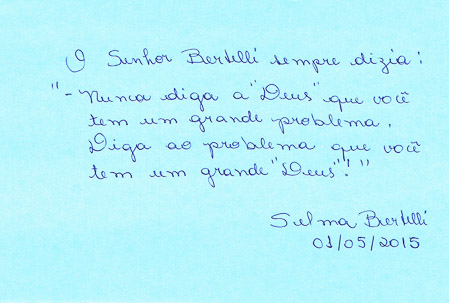 O Senhor Bertelli sempre dizia:
"- Nunca diga a "Deus" que você
tem um grande problema.
Diga ao problema que você
tem um grande "Deus"!"
Selma Bertelli
01/05/2015